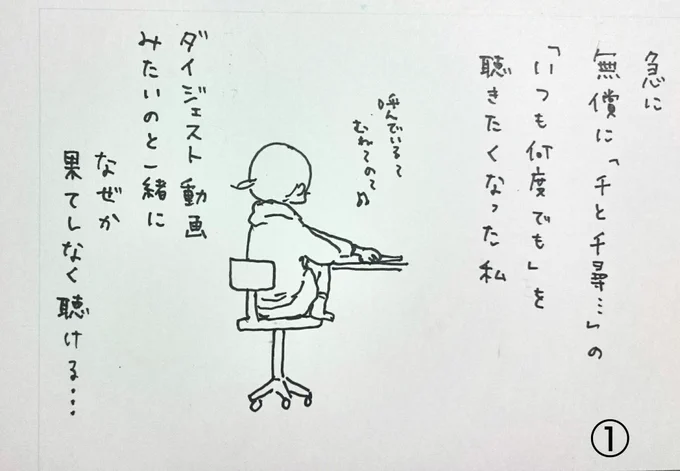 急に
無償に「千と千尋…」の
「いつも何度でも」を
聴きたくなった私
呼んでいる〜
むねの〜
ダイジェスト動画
みたいのと一緒に
なぜか
果てしなく聴ける…
①